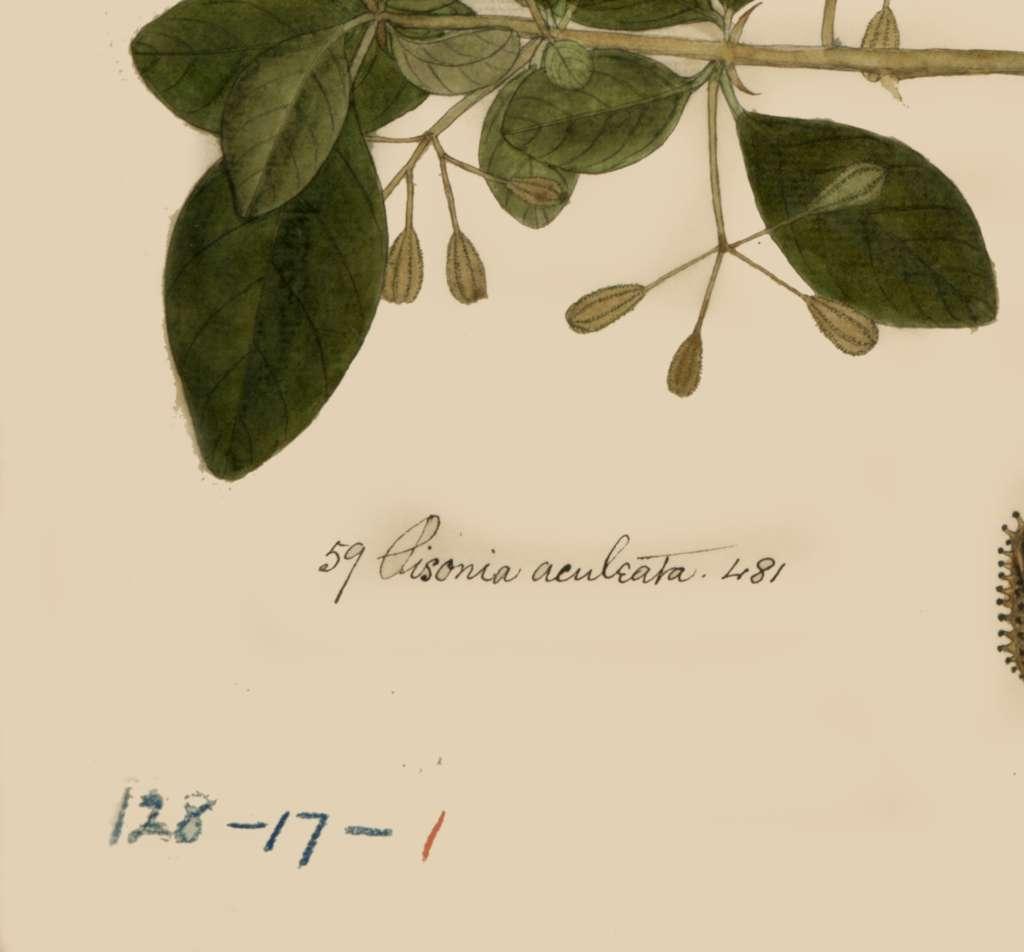 59 Pisonia aculeata. 481
128-17-1